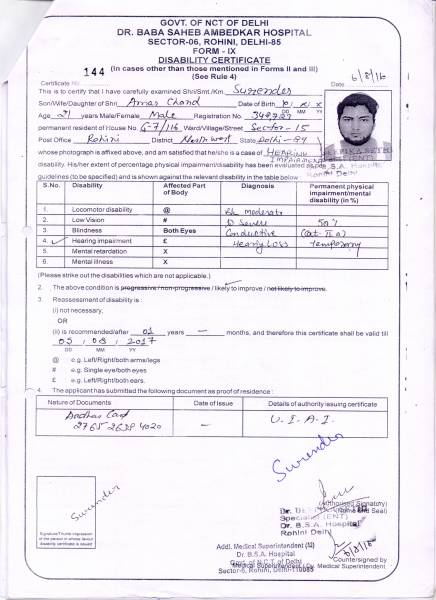 GOVT. OF NCT OF DELHI
DR. BABA SAHEB AMBEDKAR HOSPITAL
SECTOR-06, ROHINI, DELHI-85
FORM - IX
DISABILITY CERTIFICATE
(In cases other than those mentioned in Forms II and III)
(See Rule 4)
Certificate No. 144 Date 6/8/16
This is to certify that I have carefully examined Shri/Smt./Km. Surender
Son/Wife/Daughter of Shri Amar Chand Date of Birth
Age 21 years/Male/Female Male Registration No. 348737
permanent resident of House No. G-7/116 Ward/Village/Street Sector-15
Post Office Rohini District North west State Delhi-89
whose photograph is affixed above, and am satisfied that he/she is a case of HEARING IMPAIRMENT
disability. His/her extent of percentage physical impairment/disability has been evaluated as per
guidelines (to be specified) and is shown against the relevant disability in the table below :
S.No. Disability Affected Part of Body Diagnosis Permanent physical impairment/mental disability (in %)
1. Locomotor disability @ B/L moderate
2. Low Vision # to severe 50%
3. Blindness Both Eyes Conductive (Cat-II a)
4. Hearing impairment £ Hearing Loss temporary
5. Mental retardation X
6. Mental illness X
(Please strike out the disabilities which are not applicable.)
2. The above condition is progressive / non-progressive / likely to improve / not likely to improve.
3. Reassessment of disability is :
(i) not necessary.
OR
(ii) is recommended/after 01 years — months, and therefore this certificate shall be valid till
05 / 08 / 2017
DD MM YY
@ e.g. Left/Right/both arms/legs
# e.g. Single eye/both eyes
£ e.g. Left/Right/both ears.
4. The applicant has submitted the following document as proof of residence :
Nature of Documents Date of Issue Details of authority issuing certificate
Aadhar Card — U.I.A.I.
2765 2638 4020
Surender
Surender
(Authorised Signatory)
(Name and Seal)
Specialist (ENT)
Dr. B.S.A. Hospital
Rohini Delhi
6/8/16
Addl. Medical Superintendent (M)
Dr. B.S.A. Hospital
Govt. of N.C.T. of Delhi
Sector-6, Rohini, Delhi-110085
Countersigned by
Medical Superintendent / Dy. Medical Superintendent
Signature/Thumb impression
of the person in whose favour
disability certificate is issued